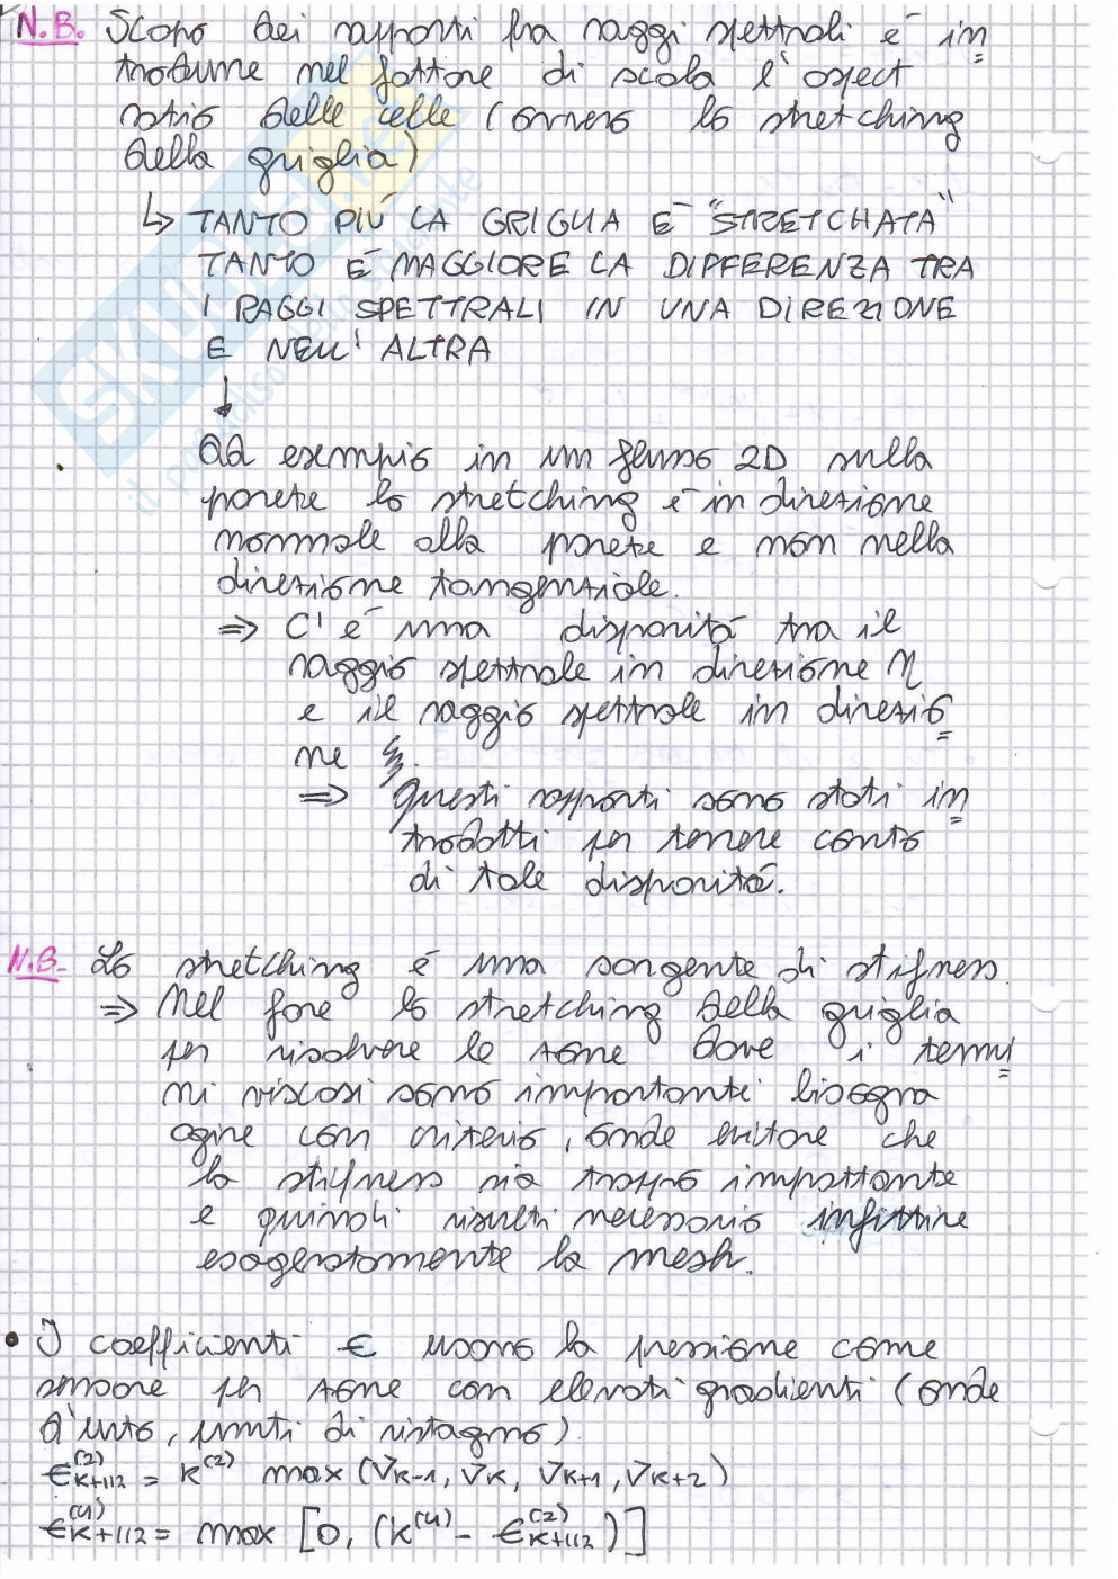 N.B. Scopo dei rapporti fra raggi spettrali é in
trodurre nel fattore di scala l'aspect
ratio delle celle (ovvero lo stretching
della griglia)
↳ TANTO PIÚ LA GRIGLIA É "STRETCHATA"
TANTO É MAGGIORE LA DIFFERENZA TRA
I RAGGI SPETTRALI IN UNA DIREZIONE
E NELL'ALTRA
↓
ad esempio in un flusso 2D sulla
parete lo stretching é in direzione
normale alla parete e non nella
direzione tangenziale.
⇒ C'é una disparitá tra il
raggio spettrale in direzione η
e il raggio spettrale in direzio
ne ξ.
⇒ questi rapporti sono stati in
trodotti per tenere conto
di tale disparitá.
N.B. Lo stretching é una sorgente di stifness.
⇒ Nel fare lo stretching della griglia
per risolvere le zone dove i termi
ni viscosi sono importanti bisogna
agire con criterio, onde evitare che
la stifness sia troppo importante
e quindi risulti necessario infittire
esageratamente la mesh.
• I coefficienti ϵ usano la pressione come
sensore per zone con elevati gradienti (onde
d'urto, punti di ristagno)
ϵ^(2)_K+1/2 = K^(2) max (ν_K-1, ν_K, ν_K+1, ν_K+2)
ϵ^(4)_K+1/2 = max [0, (K^(4) - ϵ^(2)_K+1/2)]